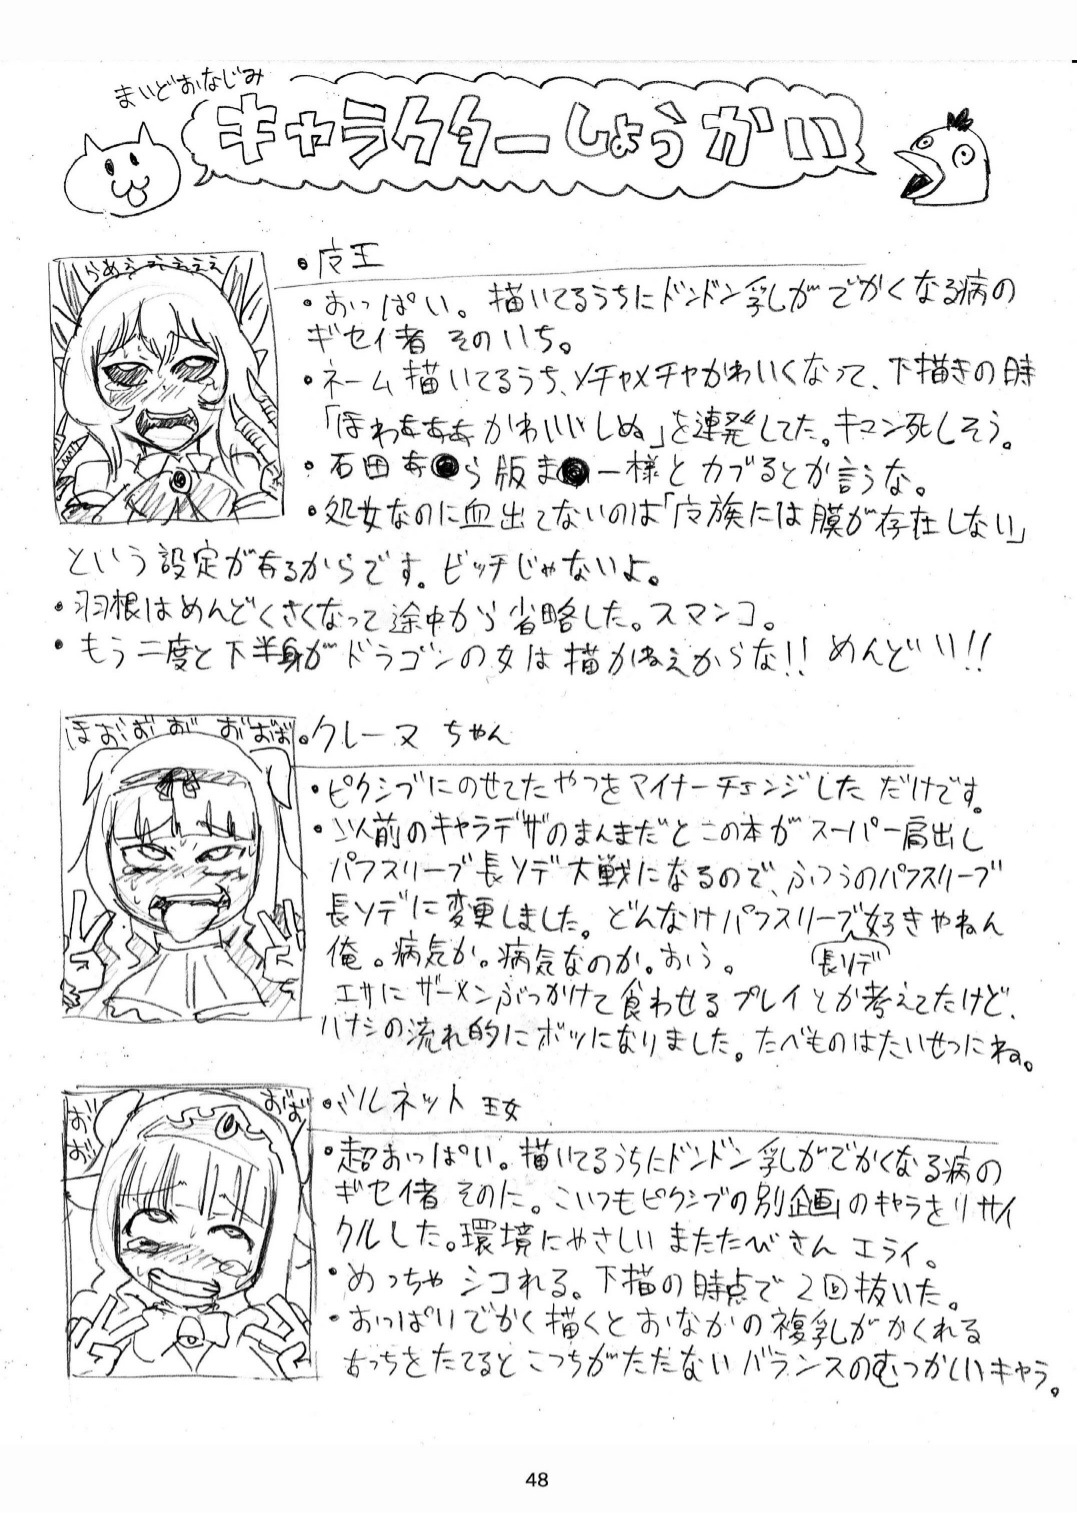 まいどおなじみ
キャラクターしょうかい
らめぇぇぇぇぇ
・皮王
・おっぱい。描いてるうちにドンドン乳がでかくなる病の
ギセイ者 そのいち。
・ネーム描いてるうち、メチャメチャかわいくなって、下描きの時
「ほわぁぁぁかわいいしぬ」を連発してた。キュン死しそう。
・石田あ●ら版ま●ー様とカブるとか言うな。
・処女なのに血出てないのは「皮族には膜が存在しない」
という設定が有るからです。ビッチじゃないよ。
・羽根はめんどくさくなって途中から省略した。スマンコ。
・もう二度と下半身がドラゴンの女は描かねえからな!!めんどい!!
ほお゛お゛お゛ お゛お゛お゛
・クレーヌ ちゃん
・ピクシブにのせてたやつをマイナーチェンジした だけです。
・以前のキャラデザのまんまだとこの本がスーパー肩出し
パフスリーブ長ソデ大戦になるので、ふつうのパフスリーブ
長ソデに変更しました。どんなけパフスリーブ好きやねん
長ソデ
俺。病気か。病気なのか。おいう。
エサにザーメンぶっかけて食わせるプレイとか考えてたけど、
ハナシの流れ的にボツになりました。たべものはたいせつにね。
お゛お゛
お゛お゛
・バルネット 王女
・超おっぱい。描いてるうちにドンドン乳がでかくなる病の
ギセイ者 そのに。こいつもピクシブの別企画のキャラをリサイ
クルした。環境にやさしい またたびさん エライ。
・めっちゃ シコれる。下描の時点で2回抜いた。
・おっぱいでかく描くとおなかの複乳がかくれる
あっちをたてるとこっちがたたないバランスのむつかしいキャラ。
48